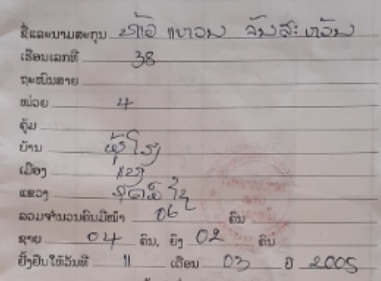 ຊື່ແລະນາມສະກຸນ ທ້າວ ແຫວນ ຈັນສະຫວັນ
ເຮືອນເລກທີ 38
ຖະໜົນສາຍ
ໜ່ວຍ 4
ຄຸ້ມ
ບ້ານ
ເມືອງ
ແຂວງ
ລວມຈຳນວນຄົນມີໜ້າ 06 ຄົນ
ຊາຍ 04 ຄົນ, ຍິງ 02 ຄົນ
ຢັ້ງຢືນໃຫ້ວັນທີ 11 ເດືອນ 03 ປີ 2005